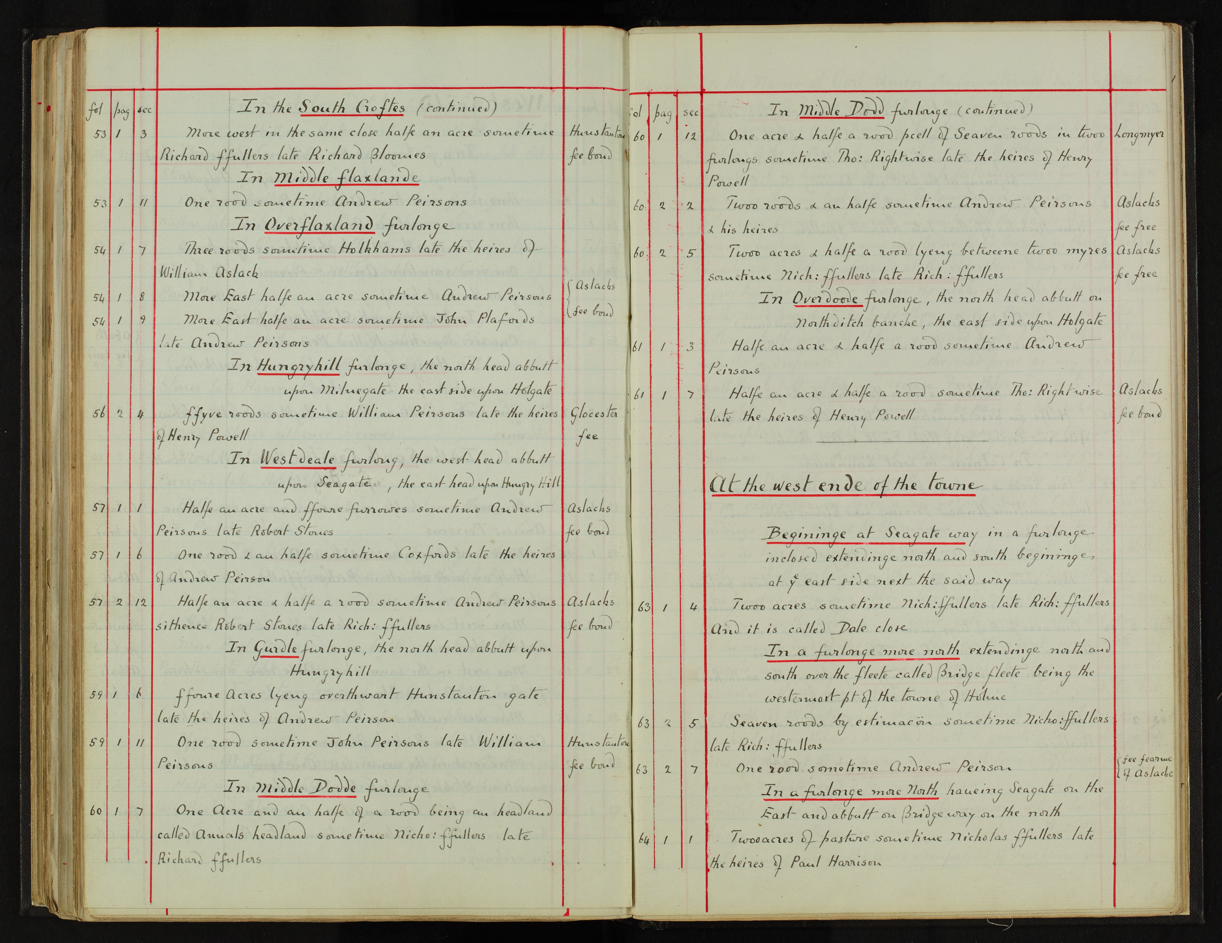 fol pag sec In the South Croftes (continued)
53 1 3 More west in the same close halfe an acre sometime Hunstanton
Richard ffullers late Richard Bloomes fee bond
In Middle flaxlande
53 1 11 One rood sometime Andrew Peirsons
In Overflaxland furlonge
54 1 7 Three roods sometime Holkhams late the heires of
William Aslack
54 1 8 More East halfe an acre sometime Andrew Peirsons { Aslacks
54 1 9 More East halfe an acre sometime John Plafords fee bond
late Andrew Peirsons
In Hungryhill furlonge, the north head abbutt
upon Milnegate the east side upon Holgate
56 2 4 ffyve roods sometime William Peirsons late the heires Glocester
of Henry Powell fee
In Westdeale furlong, the west head abbutt
upon Seagate, the east head upon Hungry Hill
57 1 1 Halfe an acre and ffoure furrowes sometime Andrew Aslacks
Peirsons late Robert Stones fee bond
57 1 6 One rood & an halfe sometime Coxfords late the heires
of Andrew Peirson
57 2 12 Halfe an acre & halfe a rood sometime Andrew Peirsons Aslacks
sithence Robert Stones late Rich: ffullers fee bond
In Gurdle furlonge, the north head abbutt upon
Hungryhill
59 1 6 ffoure Acres lyeng overthwart Hunstanton gate
late the heires of Andrew Peirson
59 1 11 One rood sometime John Peirsons late William Hunstanton
Peirsons fee bond
In Middle Dodde furlonge
60 1 7 One Acre and an halfe of a rood being an headland
called Annals headland sometime Nicho: ffullers late
Richard ffullers
fol pag. sec In Middle Dodd furlonge (continued)
60 1 12 One acre & halfe a rood pcell of Seaven roods in twoo Longmyer
furlongs sometime Tho: Rightwise late the heires of Henry
Powell
60 2 2 Twoo roods & an halfe sometime Andrew Peirsons Aslacks
& his heires fee free
60 2 5 Twoo acres & halfe a rood lyeng betweene twoo myres Aslacks
sometime Nich: ffullers late Rich: ffullers fee free
In Overdoode furlonge, the north head abbutt on
Northditch bancke, the east side upon Holgate
61 1 3 Halfe an acre & halfe a rood sometime Andrew
Peirsons
61 1 7 Halfe an acre & halfe a rood sometime Tho: Rightwise Aslacks
late the heires of Henry Powell fee bond
At the west ende of the towne
Begininge at Seagate way in a furlonge
inclosed extendinge north and south begininge
at yᵉ east side next the said way
63 1 4 Twoo acres sometime Nich: ffullers late Rich: ffullers
And it is called Dale close
In a furlonge more north extendinge north and
south over the fleete called Bridge fleete being the
westermost pt of the towne of Holme
63 2 5 Seaven roods by estimacōn sometime Nicho: ffullers
late Rich: ffullers
63 2 7 One rood sometime Andrew Peirson { fee fearme
of Aslacke
In a furlonge more North haveing Seagate on the
East and abbutt on Bridgeway on the north
64 1 1 Twoo acres of pasture sometime Nicholas ffullers late
the heires of Paul Harrison